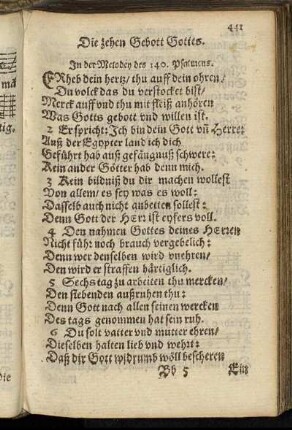 441
Die zehen Gebott Gottes.
In der Melodey des 140. Psalmens.
ERheb dein hertz/ thu auff dein ohren/
Du volck das du verstocket bist/
Merck auff vnd thu mit fleiß anhören
Was Gotts gebott vnd willen ist.
2 Er spricht: Ich bin dein Gott vñ Herre:
Auß der Egypter land ich dich
Geführt hab auß gefängnuß schwere:
Kein ander Götter hab denn mich.
3 Kein bildniß du dir machen wollest
Von allem/ es sey was es woll:
Dasselb auch nicht anbetten sollest:
Denn Gott der HErr ist eyfers voll.
4 Den nahmen Gottes deines HErren
Nicht führ noch brauch vergebelich:
Denn wer denselben wird vnehren/
Den wird er straffen härtiglich.
5 Sechs tag zu arbeiten thu mercken/
Den siebenden außruhen thu:
Denn Gott nach allen seinen wercken
Des tags genommen hat sein ruh.
6 Du solt vatter vnd mutter ehren/
Dieselben halten lieb vnd wehrt:
Daß dir Gott widrumb wöll bescheren
Bb 5 Ein